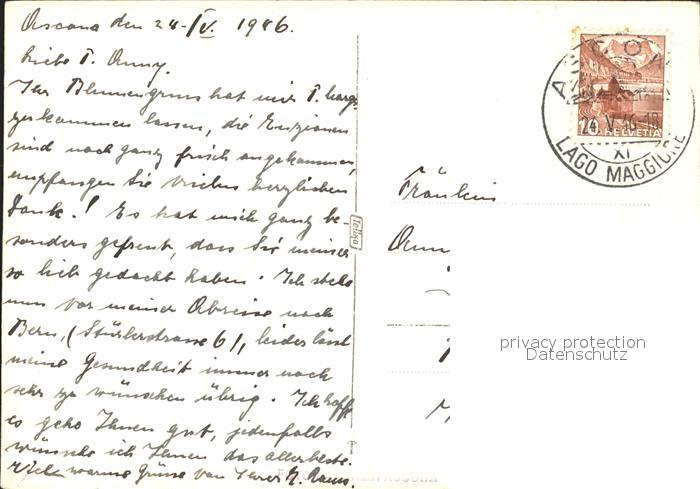 Ascona den 24./V. 1946.
Liebe T. Anny.
Ihr Blumengruss hat mir T.
zukommen lassen, die Enzianen
sind noch ganz frisch angekommen,
empfangen Sie vielen herzlichen
Dank! Es hat mich ganz be-
sonders gefreut, dass Sie meiner
so lieb gedacht haben. Ich stehe
nun vor meiner Abreise nach
Bern, (Stürlerstrasse 6), leider lässt
meine Gesundheit immer noch
sehr zu wünschen übrig. Ich hoffe
es gehe Ihnen gut, jedenfalls
wünsche ich Ihnen das allerbeste.
warme Grüsse von Ihrer
Fräulein
Ann
HELVETIA
24.V.46
XI
LAGO MAGGIORE
privacy protection
Datenschutz